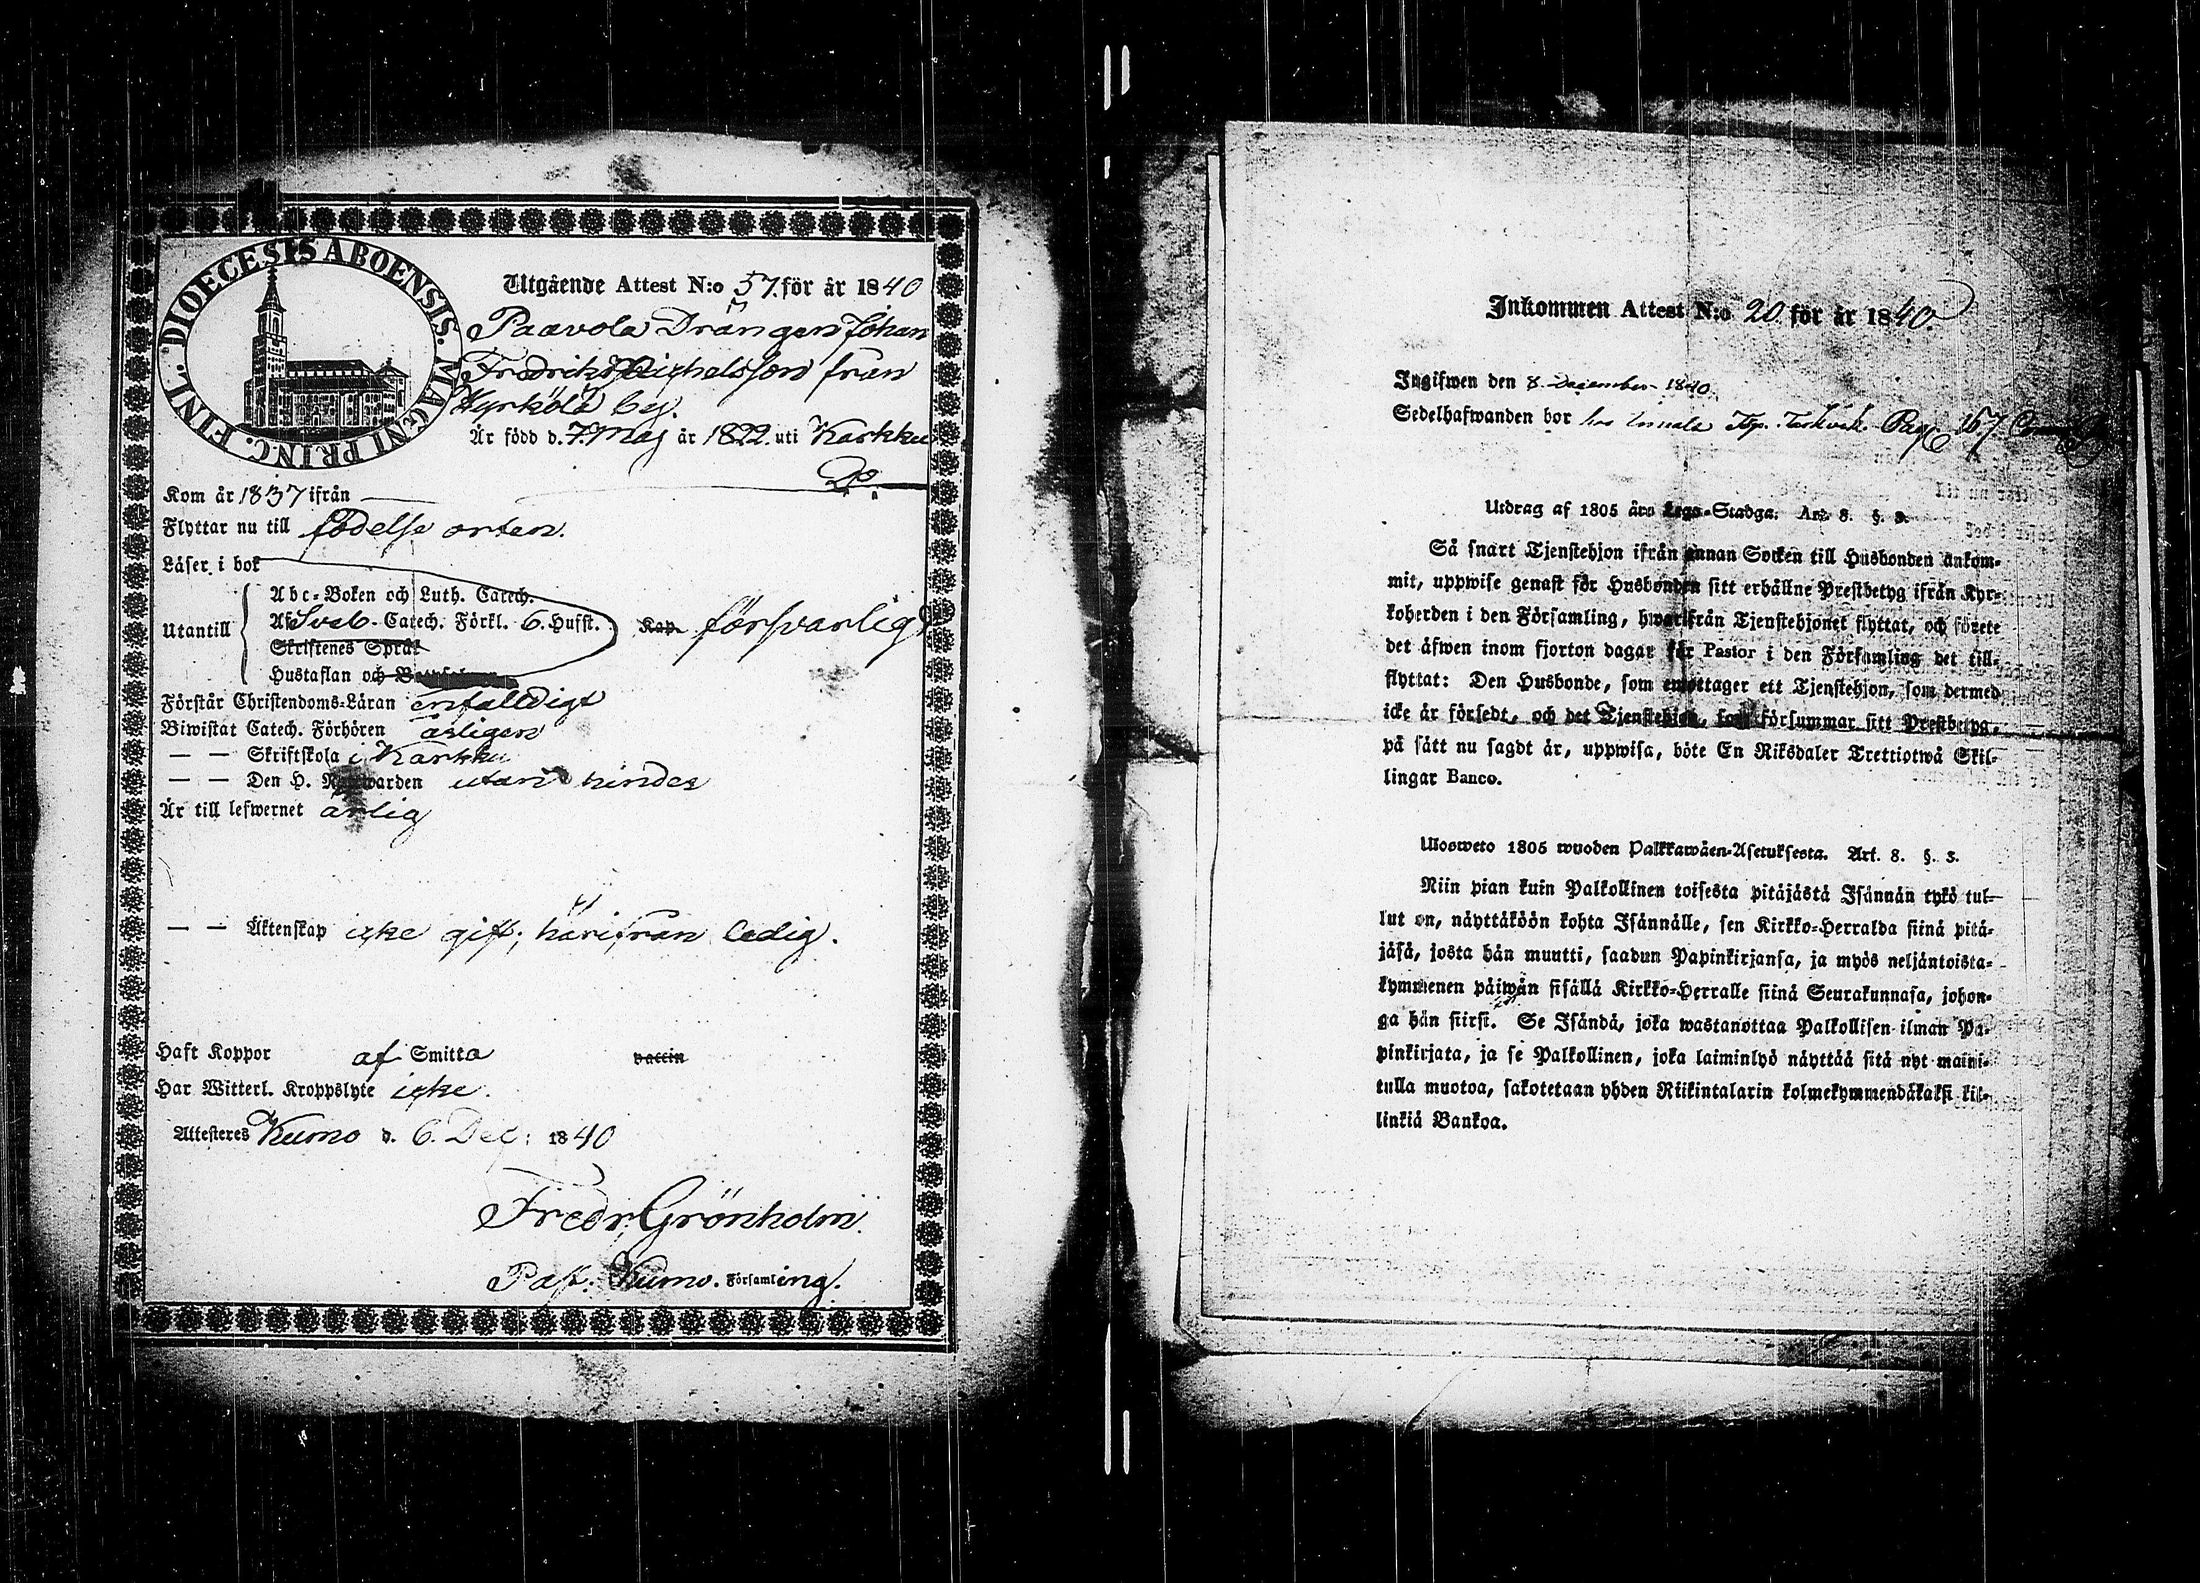 DIOECESIS ABOENSIS. MAGNI PRINC. FINL.
Utgående Attest N:o 57. för år 1840
Paavola Drängen Johan
Fredrik Michelsson från
Kyrkölä by.
Är född d. 7. Maj år 1822. uti Karkku
Kom år 1837 ifrån — Do.
Flyttar nu till födelse orten.
Läser i bok
Utantill
Abc-Boken och Luth. Catech.
Af Sveb. Catech. Förkl. 6. Hufst.
Skriftenes Språk
Hustaflan och
Kap. försvarligt
Förstår Christendoms-Läran enfalldigt
Biwistat Catech. Förhören årligen
— — Skriftskola i Karkku
— — Den H. Nattwarden utan hinder
Är till lefwernet ärlig
— — Äktenskap icke gift; härifrån ledig.
Haft Koppor af Smitta vaccin
Har Witterl. Kroppslyte icke.
Attesteres Kumo d. 6. Dec: 1840
Fredr. Grönholm
Past. Kumo. Församling.
Inkommen Attest N:o 20 för år 1840.
Ingifwen den 8. December 1840.
Sedelhafwanden bor hos Pag 167
Utdrag af 1805 års Lego-Stadga. Art. 8. §. 3.
Så snart Tjenstehjon ifrån annan Socken till Husbonden ankom-
mit, uppwise genast för Husbonden sitt erhållne Prestbetyg ifrån Kyr-
koherden i den Församling, hwarifrån Tjenstehjonet flyttat, och förete
det äfwen inom fjorton dagar för Pastor i den Församling det till-
flyttat: Den Husbonde, som emottager ett Tjenstehjon, som dermed
icke är försedt, och det Tjenstehjon, som försummar sitt Prestbetyg,
på sätt nu sagdt är, uppwisa, böte En Riksdaler Trettiotwå Skil-
lingar Banco.
Ulosweto 1805 wuoden Palkkawäen-Asetuksesta. Art. 8. §. 3.
Niin pian kuin Palkollinen toisesta pitäjästä Isännän tykö tul-
lut on, näyttäköön kohta Isännälle, sen Kirkko-Herralda siinä pitä-
jäsä, josta hän muutti, saadun Papinkirjansa, ja myös neljäntoista-
kymmenen päiwän sisällä Kirkko-Herralle siinä Seurakunnasa, johon-
ga hän siirsi. Se Isändä, joka wastanottaa Palkollisen ilman Pa-
pinkirjata, ja se Palkollinen, joka laiminlyö näyttää sitä nyt maini-
tulla muotoa, sakotetaan yhden Riikintalarin kolmekymmendäkaksi kil-
linkiä Bankoa.